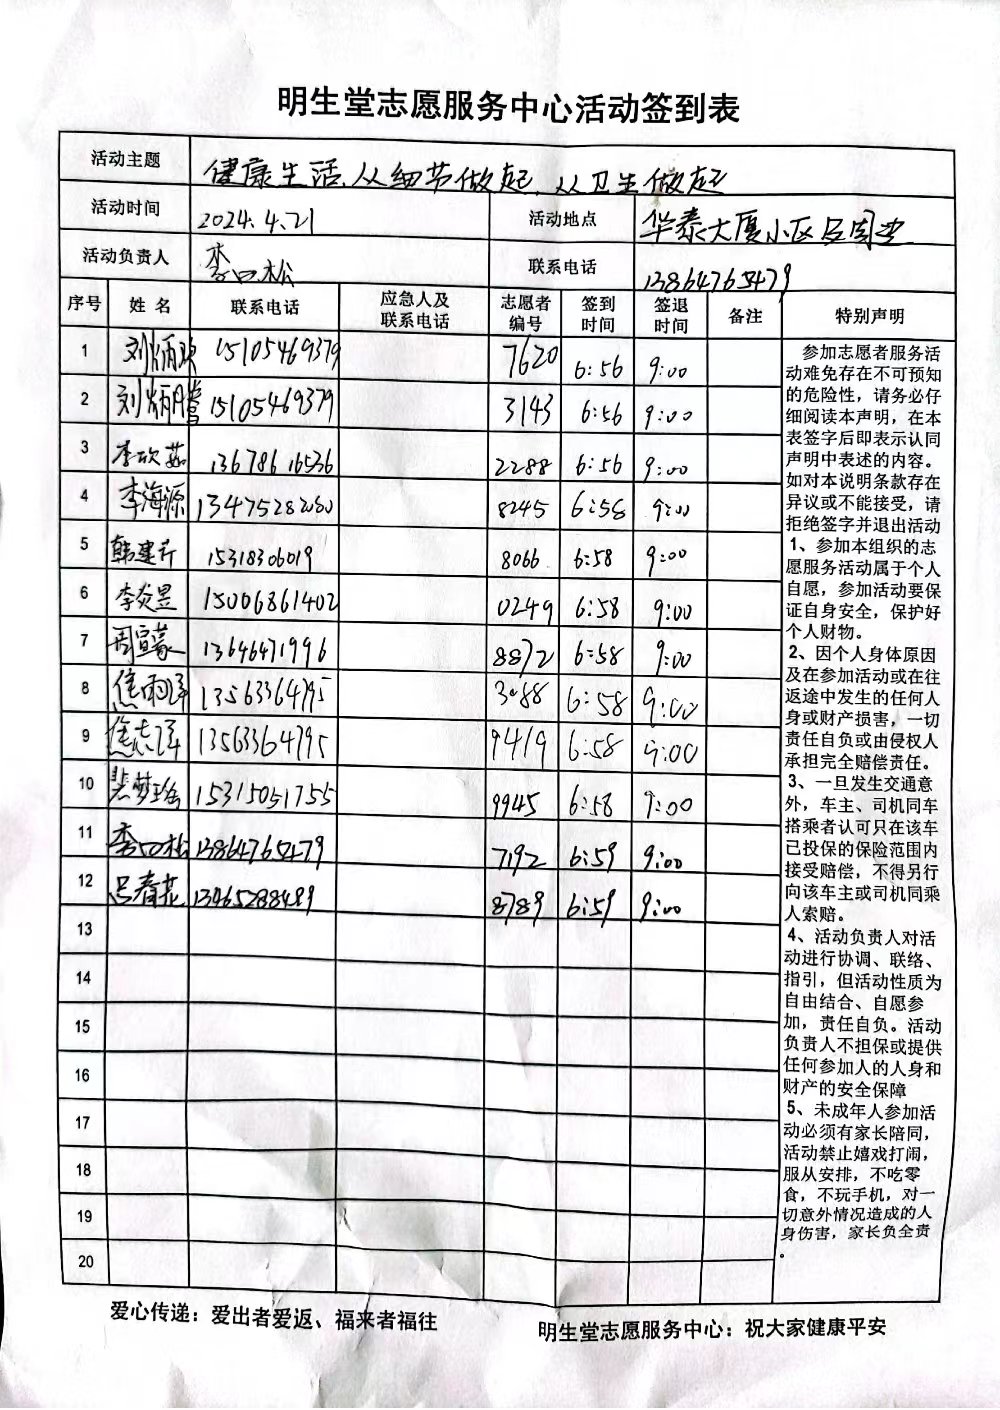 明生堂志愿服务中心活动签到表
活动主题 健康生活、从细节做起、从卫生做起
活动时间 2024.4.21 活动地点 华泰大厦小区及周边
活动负责人 李 松 联系电话 13864765479
序号 姓名 联系电话 应急人及联系电话 志愿者编号 签到时间 签退时间 备注 特别声明
1 刘炳 15105469379 7620 6:56 9:00
2 刘炳 15105469379 3143 6:56 9:00
3 李欣茹 13678616536 2288 6:56 9:00
4 李海源 13475282080 8245 6:58 9:00
5 韩建 15318306019 8066 6:58 9:00
6 李炎昱 15006861402 0249 6:58 9:00
7 周宣蒙 13646471996 8872 6:58 9:00
8 焦雨泽 13563364795 3088 6:58 9:00
9 焦志泽 13563364795 9419 6:58 9:00
10 裴梦瑶 15315051755 9945 6:58 9:00
11 李 松 13864765479 7192 6:59 9:00
12 吕春花 13465288489 8789 6:59 9:00
13
14
15
16
17
18
19
20
参加志愿者服务活
动难免存在不可预知
的危险性，请务必仔
细阅读本声明，在本
表签字后即表示认同
声明中表述的内容。
如对本说明条款存在
异议或不能接受，请
拒绝签字并退出活动
1、参加本组织的志
愿服务活动属于个人
自愿，参加活动要保
证自身安全，保护好
个人财物。
2、因个人身体原因
及在参加活动或在往
返途中发生的任何人
身或财产损害，一切
责任自负或由侵权人
承担完全赔偿责任。
3、一旦发生交通意
外，车主、司机同车
搭乘者认可只在该车
已投保的保险范围内
接受赔偿，不得另行
向该车主或司机同乘
人索赔。
4、活动负责人对活
动进行协调、联络、
指引，但活动性质为
自由结合、自愿参
加，责任自负。活动
负责人不担保或提供
任何参加人的人身和
财产的安全保障
5、未成年人参加活
动必须有家长陪同，
活动禁止嬉戏打闹，
服从安排，不吃零
食，不玩手机，对一
切意外情况造成的人
身伤害，家长负全责
。
爱心传递：爱出者爱返、福来者福往
明生堂志愿服务中心：祝大家健康平安